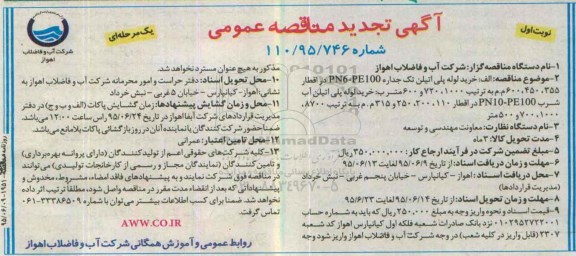 آگهی تجدید مناقصه عمومی
شماره ۱۱۰/۹۵/۷۴۶
نوبت اول
یک مرحله‌ای
شرکت آب و فاضلاب
اهواز
۱-نام دستگاه مناقصه گزار: شرکت آب و فاضلاب اهواز
۲-موضوع مناقصه: الف: خرید لوله پلی اتیلن تک جداره PN6-PE100 در اقطار
۴۰۰،۳۵۵ م.م به ترتیب ۷۲۰۰، و ۶۰۰ متر ب: خرید لوله پلی اتیلن آب
شرب PN10-PE100 در اقطار ۱۱۰، ۲۰۰، ۲۵۰ و ۳۱۵ م.م به ترتیب ۸۷۰۰،
۱۰۰۰، ۷۰۰ و ۵۰۰ متر
۳-نام دستگاه نظارت: معاونت مهندسی و توسعه
۴-مدت تحویل کالا: ۳ ماه
۵-مبلغ تضمین شرکت در فرآیند ارجاع کار: ۳۵۰،۰۰۰،۰۰۰ ریال
۶-مهلت و زمان دریافت اسناد: از تاریخ ۹۵/۶/۰۹ لغایت ۹۵/۶/۱۳
۷-محل دریافت اسناد: اهواز- کیانپارس- خیابان پنجم غربی- نبش خرداد
(مدیریت قراردادها)
۸-مهلت و زمان تحویل اسناد: از تاریخ ۹۵/۰۶/۱۴ لغایت ۹۵/۶/۲۳
۹-قیمت اسناد و نحوه واریز وجه به مبلغ ۲۵۰،۰۰۰ ریال که باید به شماره حساب
۰۱۰۲۹۵۲۷۲۲۰۰۱ نزد بانک صادرات شعبه فلکه اول کیانپارس اهواز کد شعبه
۲۳۰۷ (قابل واریز در کلیه شعب) در وجه شرکت آب و فاضلاب اهواز واریز شود وجه
مذکور به هیچ عنوان مسترد نخواهد شد.
۱۰-محل تحویل اسناد: دفتر حراست و امور محرمانه شرکت آب و فاضلاب اهواز به
نشانی اهواز- کیانپارس- خیابان ۵ غربی- نبش خرداد
۱۱-محل و زمان گشایش پیشنهادها: زمان گشایش پاکات (الف و ب و ج) در دفتر
مدیریت قراردادهای شرکت آبفا اهواز در تاریخ ۹۵/۰۶/۲۴ راس ساعت ۱۲:۰۰ می‌باشد.
ضمنا حضور شرکت کنندگان یا نماینده آنان در روز بازگشایی پاکات بلامانع می‌باشد.
۱۲-محل تامین اعتبار: عمرانی
۱۳-کلیه شرکت‌های حقوقی اعم از تولیدکنندگان (دارای پروانه بهره‌برداری)
و تامین کنندگان (نمایندگان مجاز و رسمی از کارخانجات تولیدی) می‌توانند
در مناقصه فوق شرکت نمایند و به پیشنهادهای فاقد امضاء، مشروط، مخدوش و
پیشنهاداتی که بعد از انقضاء مدت مقرر در مناقصه واصل شود، مطلقا ترتیب اثر داده
نخواهد شد. ضمنا برای کسب اطلاعات بیشتر می‌توان با شماره ۳۳۳۸۶۵۰۹-۰۶۱
تماس گرفت.
AWW.CO.IR
روابط عمومی و آموزش همگانی شرکت آب و فاضلاب اهواز